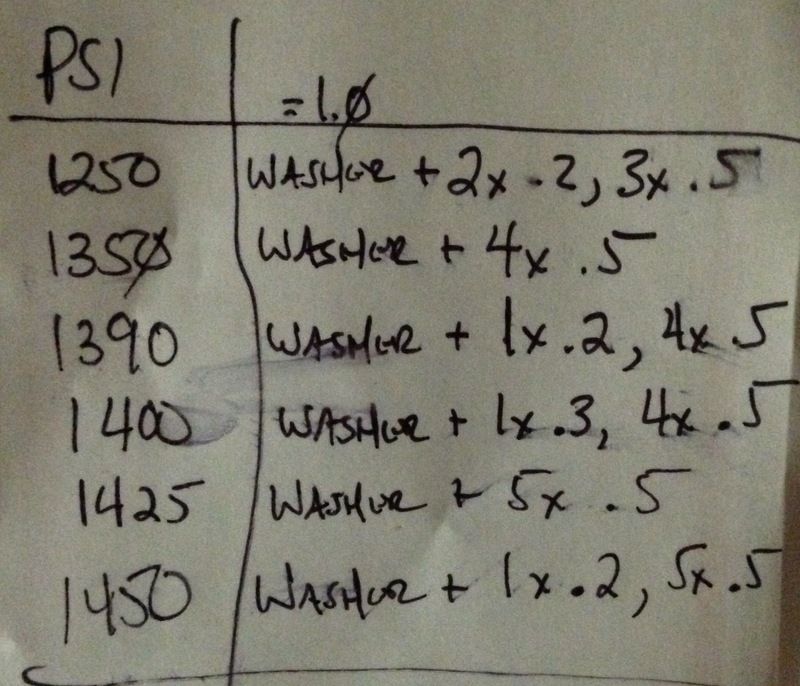 PSI
=1.0
1250 WASHER + 2x .2, 3x .5
1350 WASHER + 4x .5
1390 WASHER + 1x .2, 4x .5
1400 WASHER + 1x .3, 4x .5
1425 WASHER + 5x .5
1450 WASHER + 1x .2, 5x .5